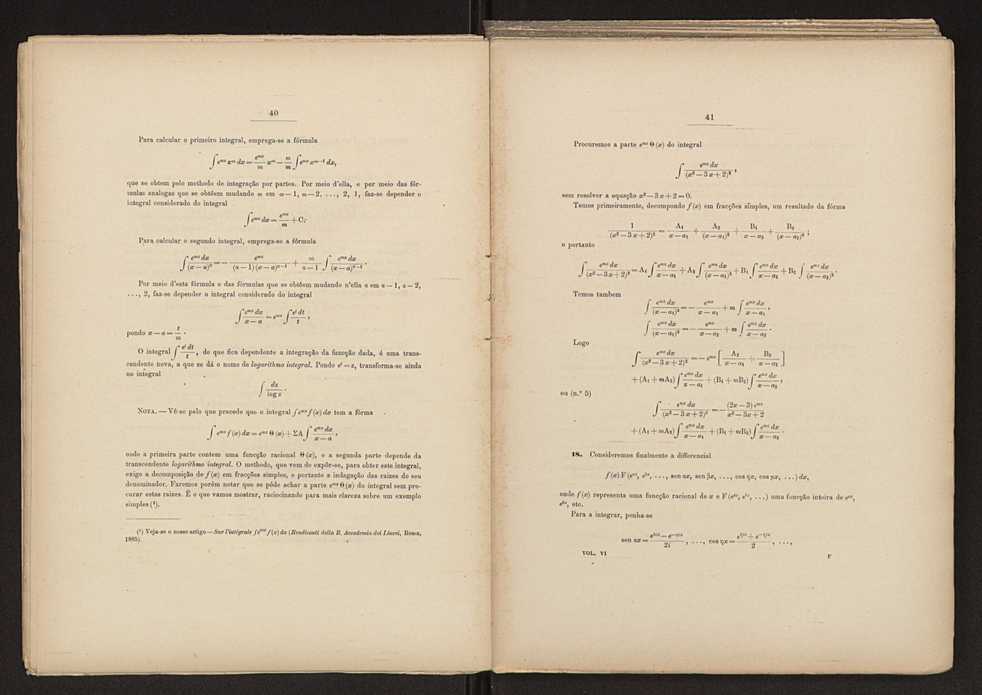 40
Para calcular o primeiro integral, emprega-se a fórmula
∫ e^{mx} x^α dx = e^{mx}/m x^α − α/m ∫ e^{mx} x^{α−1} dx,
que se obtem pelo methodo de integração por partes. Por meio d'ella, e por meio das fór-
mulas analogas que se obtêem mudando α em α − 1, α − 2, ..., 2, 1, faz-se depender o
integral considerado do integral
∫ e^{mx} dx = e^{mx}/m + C.
Para calcular o segundo integral, emprega-se a fórmula
∫ e^{mx} dx/(x − a)^α = − e^{mx}/((α − 1)(x − a)^{α−1}) + m/(α − 1) ∫ e^{mx} dx/(x − a)^{α−1}.
Por meio d'esta fórmula e das fórmulas que se obtêem mudando n'ella α em α − 1, α − 2,
..., 2, faz-se depender o integral considerado do integral
∫ e^{mx} dx/(x − a) = e^{ma} ∫ e^t dt/t,
pondo x − a = t/m.
O integral ∫ e^t dt/t, de que fica dependente a integração da funcção dada, é uma trans-
cendente nova, a que se dá o nome de logarithmo integral. Pondo e^t = z, transforma-se ainda
no integral
∫ dz/log z.
NOTA. — Vê-se pelo que precede que o integral ∫ e^{mx} f(x) dx tem a fórma
∫ e^{mx} f(x) dx = e^{mx} Θ(x) + ΣA ∫ e^{mx} dx/(x − a),
onde a primeira parte contem uma funcção racional Θ(x), e a segunda parte depende da
transcendente logarithmo integral. O methodo, que vem de expôr-se, para obter este integral,
exige a decomposição de f(x) em fracções simples, e portanto a indagação das raizes do seu
denominador. Faremos porém notar que se póde achar a parte e^{mx} Θ(x) do integral sem pro-
curar estas raizes. É o que vamos mostrar, raciocinando para mais clareza sobre um exemplo
simples (¹).
(¹) Veja-se o nosso artigo — Sur l'intégrale ∫ e^{mx} f(x) dx (Rendiconti della R. Accademia dei Lincei, Roma,
1885).
41
Procuremos a parte e^{mx} Θ(x) do integral
∫ e^{mx} dx/(x² − 3x + 2)²,
sem resolver a equação x² − 3x + 2 = 0.
Temos primeiramente, decompondo f(x) em fracções simples, um resultado da fórma
1/(x² − 3x + 2)² = A₁/(x − a₁) + A₂/(x − a₁)² + B₁/(x − a₂) + B₂/(x − a₂)²;
e portanto
∫ e^{mx} dx/(x² − 3x + 2)² = A₁ ∫ e^{mx} dx/(x − a₁) + A₂ ∫ e^{mx} dx/(x − a₁)² + B₁ ∫ e^{mx} dx/(x − a₂) + B₂ ∫ e^{mx} dx/(x − a₂)².
Temos tambem
∫ e^{mx} dx/(x − a₁)² = − e^{mx}/(x − a₁) + m ∫ e^{mx} dx/(x − a₁),
∫ e^{mx} dx/(x − a₂)² = − e^{mx}/(x − a₂) + m ∫ e^{mx} dx/(x − a₂).
Logo
∫ e^{mx} dx/(x² − 3x + 2)² = − e^{mx} [A₂/(x − a₁) + B₂/(x − a₂)]
+ (A₁ + mA₂) ∫ e^{mx} dx/(x − a₁) + (B₁ + mB₂) ∫ e^{mx} dx/(x − a₂),
ou (n.º 5)
∫ e^{mx} dx/(x² − 3x + 2)² = − (2x − 3) e^{mx}/(x² − 3x + 2)
+ (A₁ + mA₂) ∫ e^{mx} dx/(x − a₁) + (B₁ + mB₂) ∫ e^{mx} dx/(x − a₂).
18. Consideremos finalmente a differencial
f(x) F(e^{ax}, e^{bx}, ..., sen αx, sen βx, ..., cos ηx, cos γx, ...) dx,
onde f(x) representa uma funcção racional de x e F(e^{ax}, e^{bx}, ...) uma funcção inteira de e^{ax},
e^{bx}, etc.
Para a integrar, ponha-se
sen αx = (e^{iαx} − e^{−iαx})/2i, ..., cos ηx = (e^{iηx} + e^{−iηx})/2, ...,
VOL. VI
F